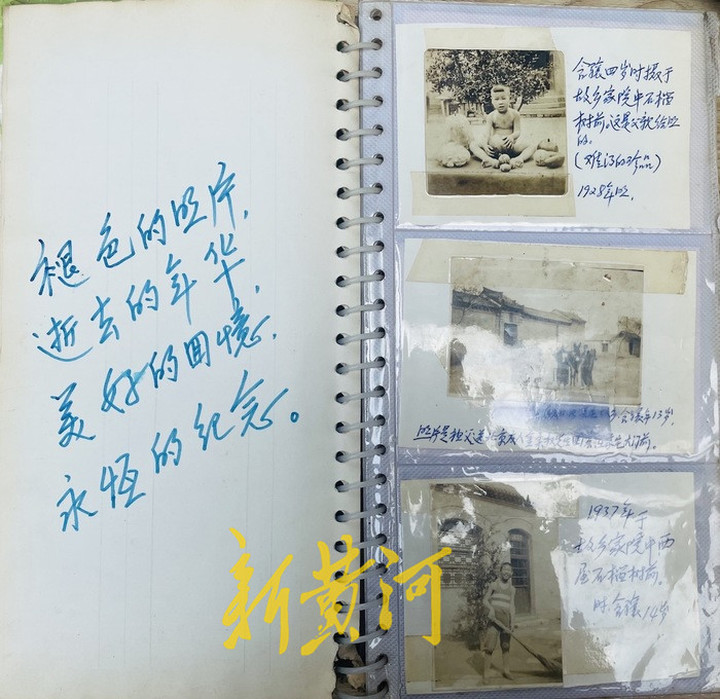 褪色的照片，
逝去的年华，
美好的回憶，
永恒的纪念。
含穰四岁时摄于
故乡家院中石榴
树前。这是父亲给照
的。
（难得的珍品）
1928年照。
含穰年13岁，
照片是
1937年于
故乡家院中西
屋石榴树前。
时含穰14岁
新黄河